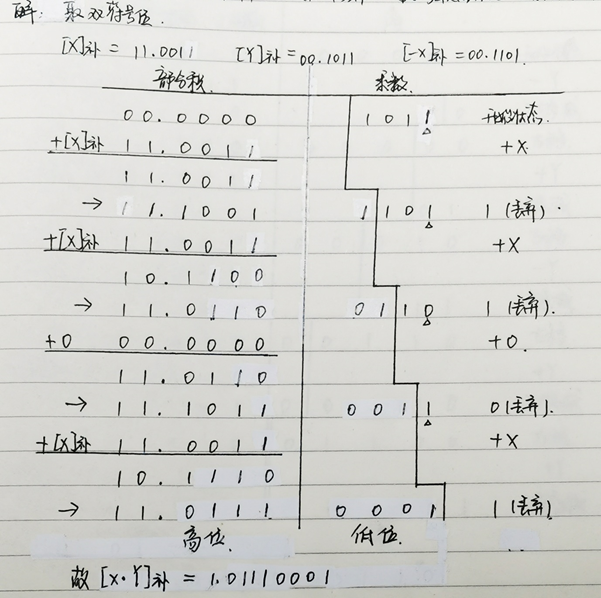 解: 取双符号位.
[X]补 = 11.0011 [Y]补 = 00.1011 [-X]补 = 00.1101.
部分积. 乘数.
00.0000 1011 开始状态.
+[X]补 11.0011 +X
11.0011
→ 11.1001 1101 1(丢弃).
+[X]补 11.0011 +X
10.1100
→ 11.0110 0110 1(丢弃).
+0 00.0000 +0.
11.0110
→ 11.1011 0011 0(丢弃).
+[X]补 11.0011 +X
10.1110
→ 11.0111 0001 1(丢弃)
高位. 低位.
故 [X·Y]补 = 1.01110001